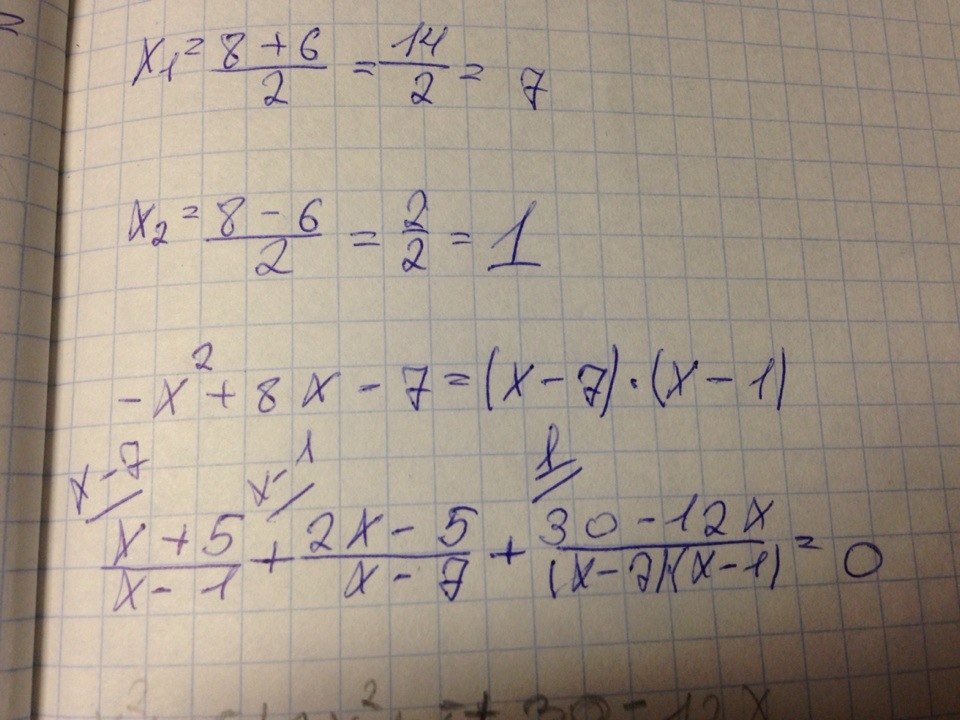 x₁ = (8 + 6)/2 = 14/2 = 7
x₂ = (8 - 6)/2 = 2/2 = 1
-x² + 8x - 7 = (x - 7) · (x - 1)
x - 7 x - 1 1
(x + 5)/(x - 1) + (2x - 5)/(x - 7) + (30 - 12x)/((x - 7)(x - 1)) = 0
+ 30 - 12x